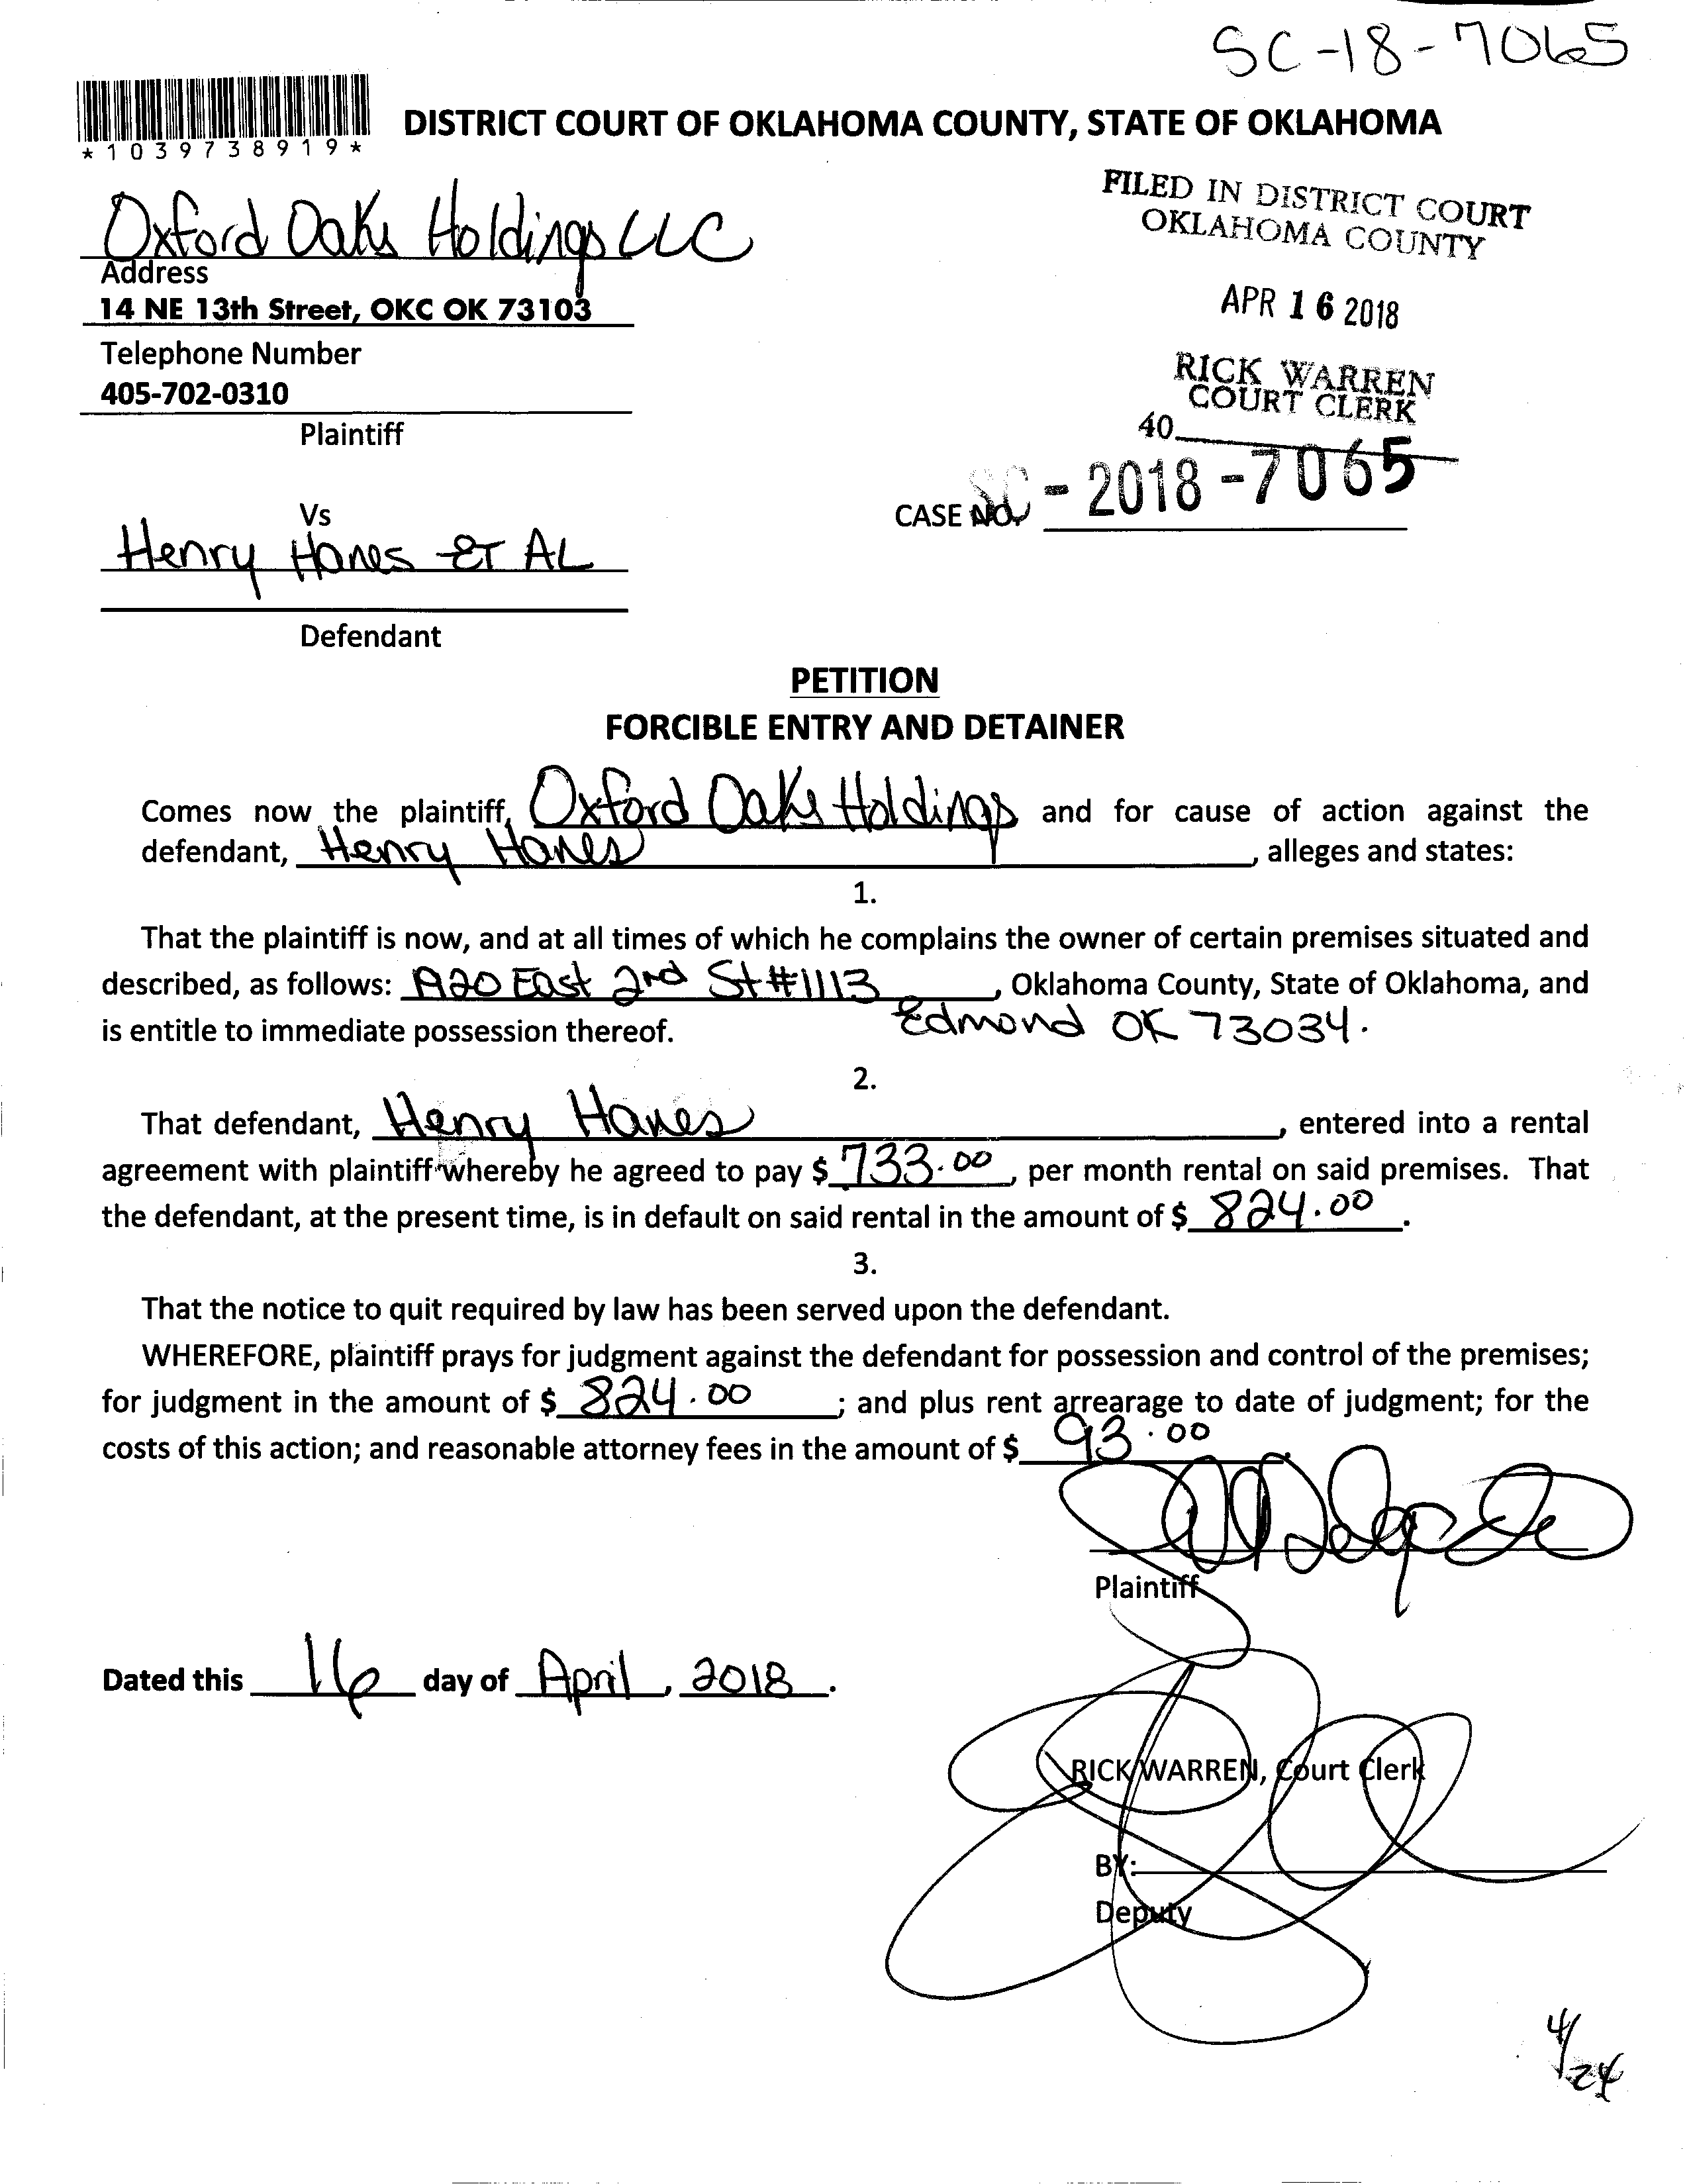 SC-18-7065
*1039738919*
DISTRICT COURT OF OKLAHOMA COUNTY, STATE OF OKLAHOMA
FILED IN DISTRICT COURT
OKLAHOMA COUNTY
Oxford Oaks Holdings LLC
Address
14 NE 13th Street, OKC OK 73103
APR 16 2018
Telephone Number
405-702-0310
RICK WARREN
COURT CLERK
40
Plaintiff
CASE NO. SC - 2018 - 7065
Vs
Henry Hanes ET AL
Defendant
PETITION
FORCIBLE ENTRY AND DETAINER
Comes now the plaintiff, Oxford Oaks Holdings and for cause of action against the
defendant, Henry Hanes, alleges and states:
1.
That the plaintiff is now, and at all times of which he complains the owner of certain premises situated and
described, as follows: 1920 East 2nd St #1113, Oklahoma County, State of Oklahoma, and
is entitle to immediate possession thereof. Edmond OK 73034.
2.
That defendant, Henry Hanes, entered into a rental
agreement with plaintiff whereby he agreed to pay $ 733.00, per month rental on said premises. That
the defendant, at the present time, is in default on said rental in the amount of $ 824.00.
3.
That the notice to quit required by law has been served upon the defendant.
WHEREFORE, plaintiff prays for judgment against the defendant for possession and control of the premises;
for judgment in the amount of $ 824.00; and plus rent arrearage to date of judgment; for the
costs of this action; and reasonable attorney fees in the amount of $ 93.00.
Plaintiff
Dated this 16 day of April, 2018.
RICK WARREN, Court Clerk
BY:
Deputy
4/24